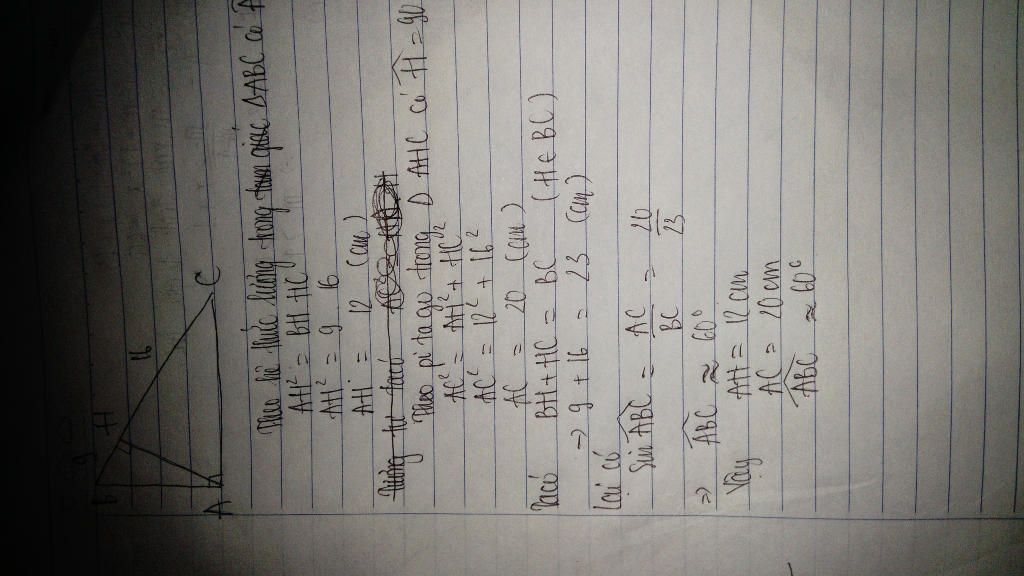 B
H
16
A
C
Theo hệ thức lượng trong tam giác ΔABC có
AH² = BH HC
AH² = 9 16
AH = 12 (cm)
Theo pi ta go trong Δ AHC có Ĥ = 90
AC² = AH² + HC²
AC² = 12² + 16²
AC = 20 (cm)
Ta có BH + HC = BC (H ∈ BC)
→ 9 + 16 = 23 (cm)
Lại có
Sin ABC = AC/BC = 20/23
⇒ ABC ≈ 60°
Vậy AH = 12 cm
AC = 20 cm
ABC ≈ 60°